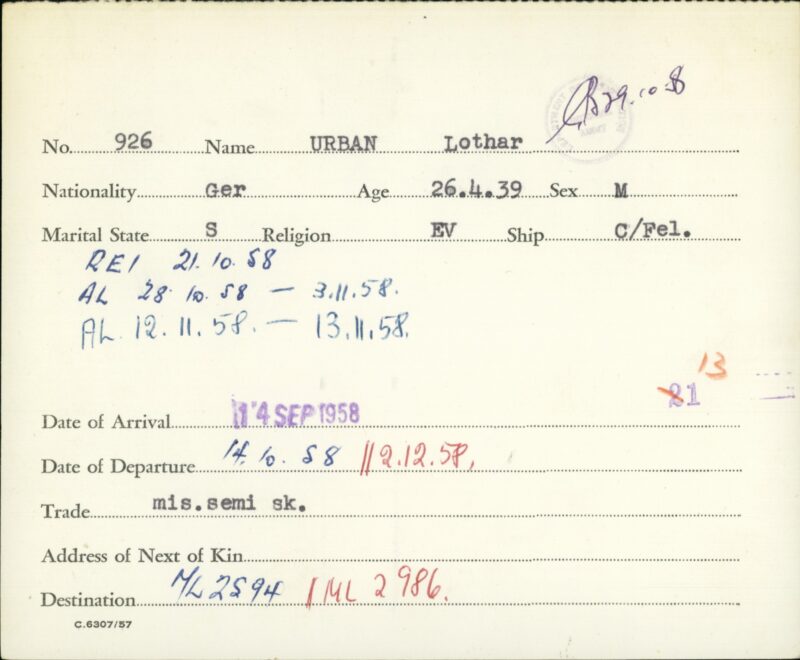 29.10.58
No. 926 Name URBAN Lothar
Nationality Ger Age 26.4.39 Sex M
Marital State S Religion EV Ship C/Fel.
REI 21.10.58
AL 28.10.58 — 3.11.58.
AL. 12.11.58. — 13.11.58.
13
21
Date of Arrival 14 SEP 1958
Date of Departure 14.10.58 || 2.12.58.
Trade mis.semi sk.
Address of Next of Kin
Destination M/L 2594 | ML 2986.
C.6307/57